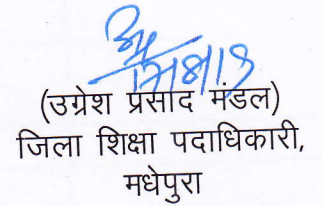 (उग्रेश प्रसाद मंडल)
जिला शिक्षा पदाधिकारी,
मधेपुरा